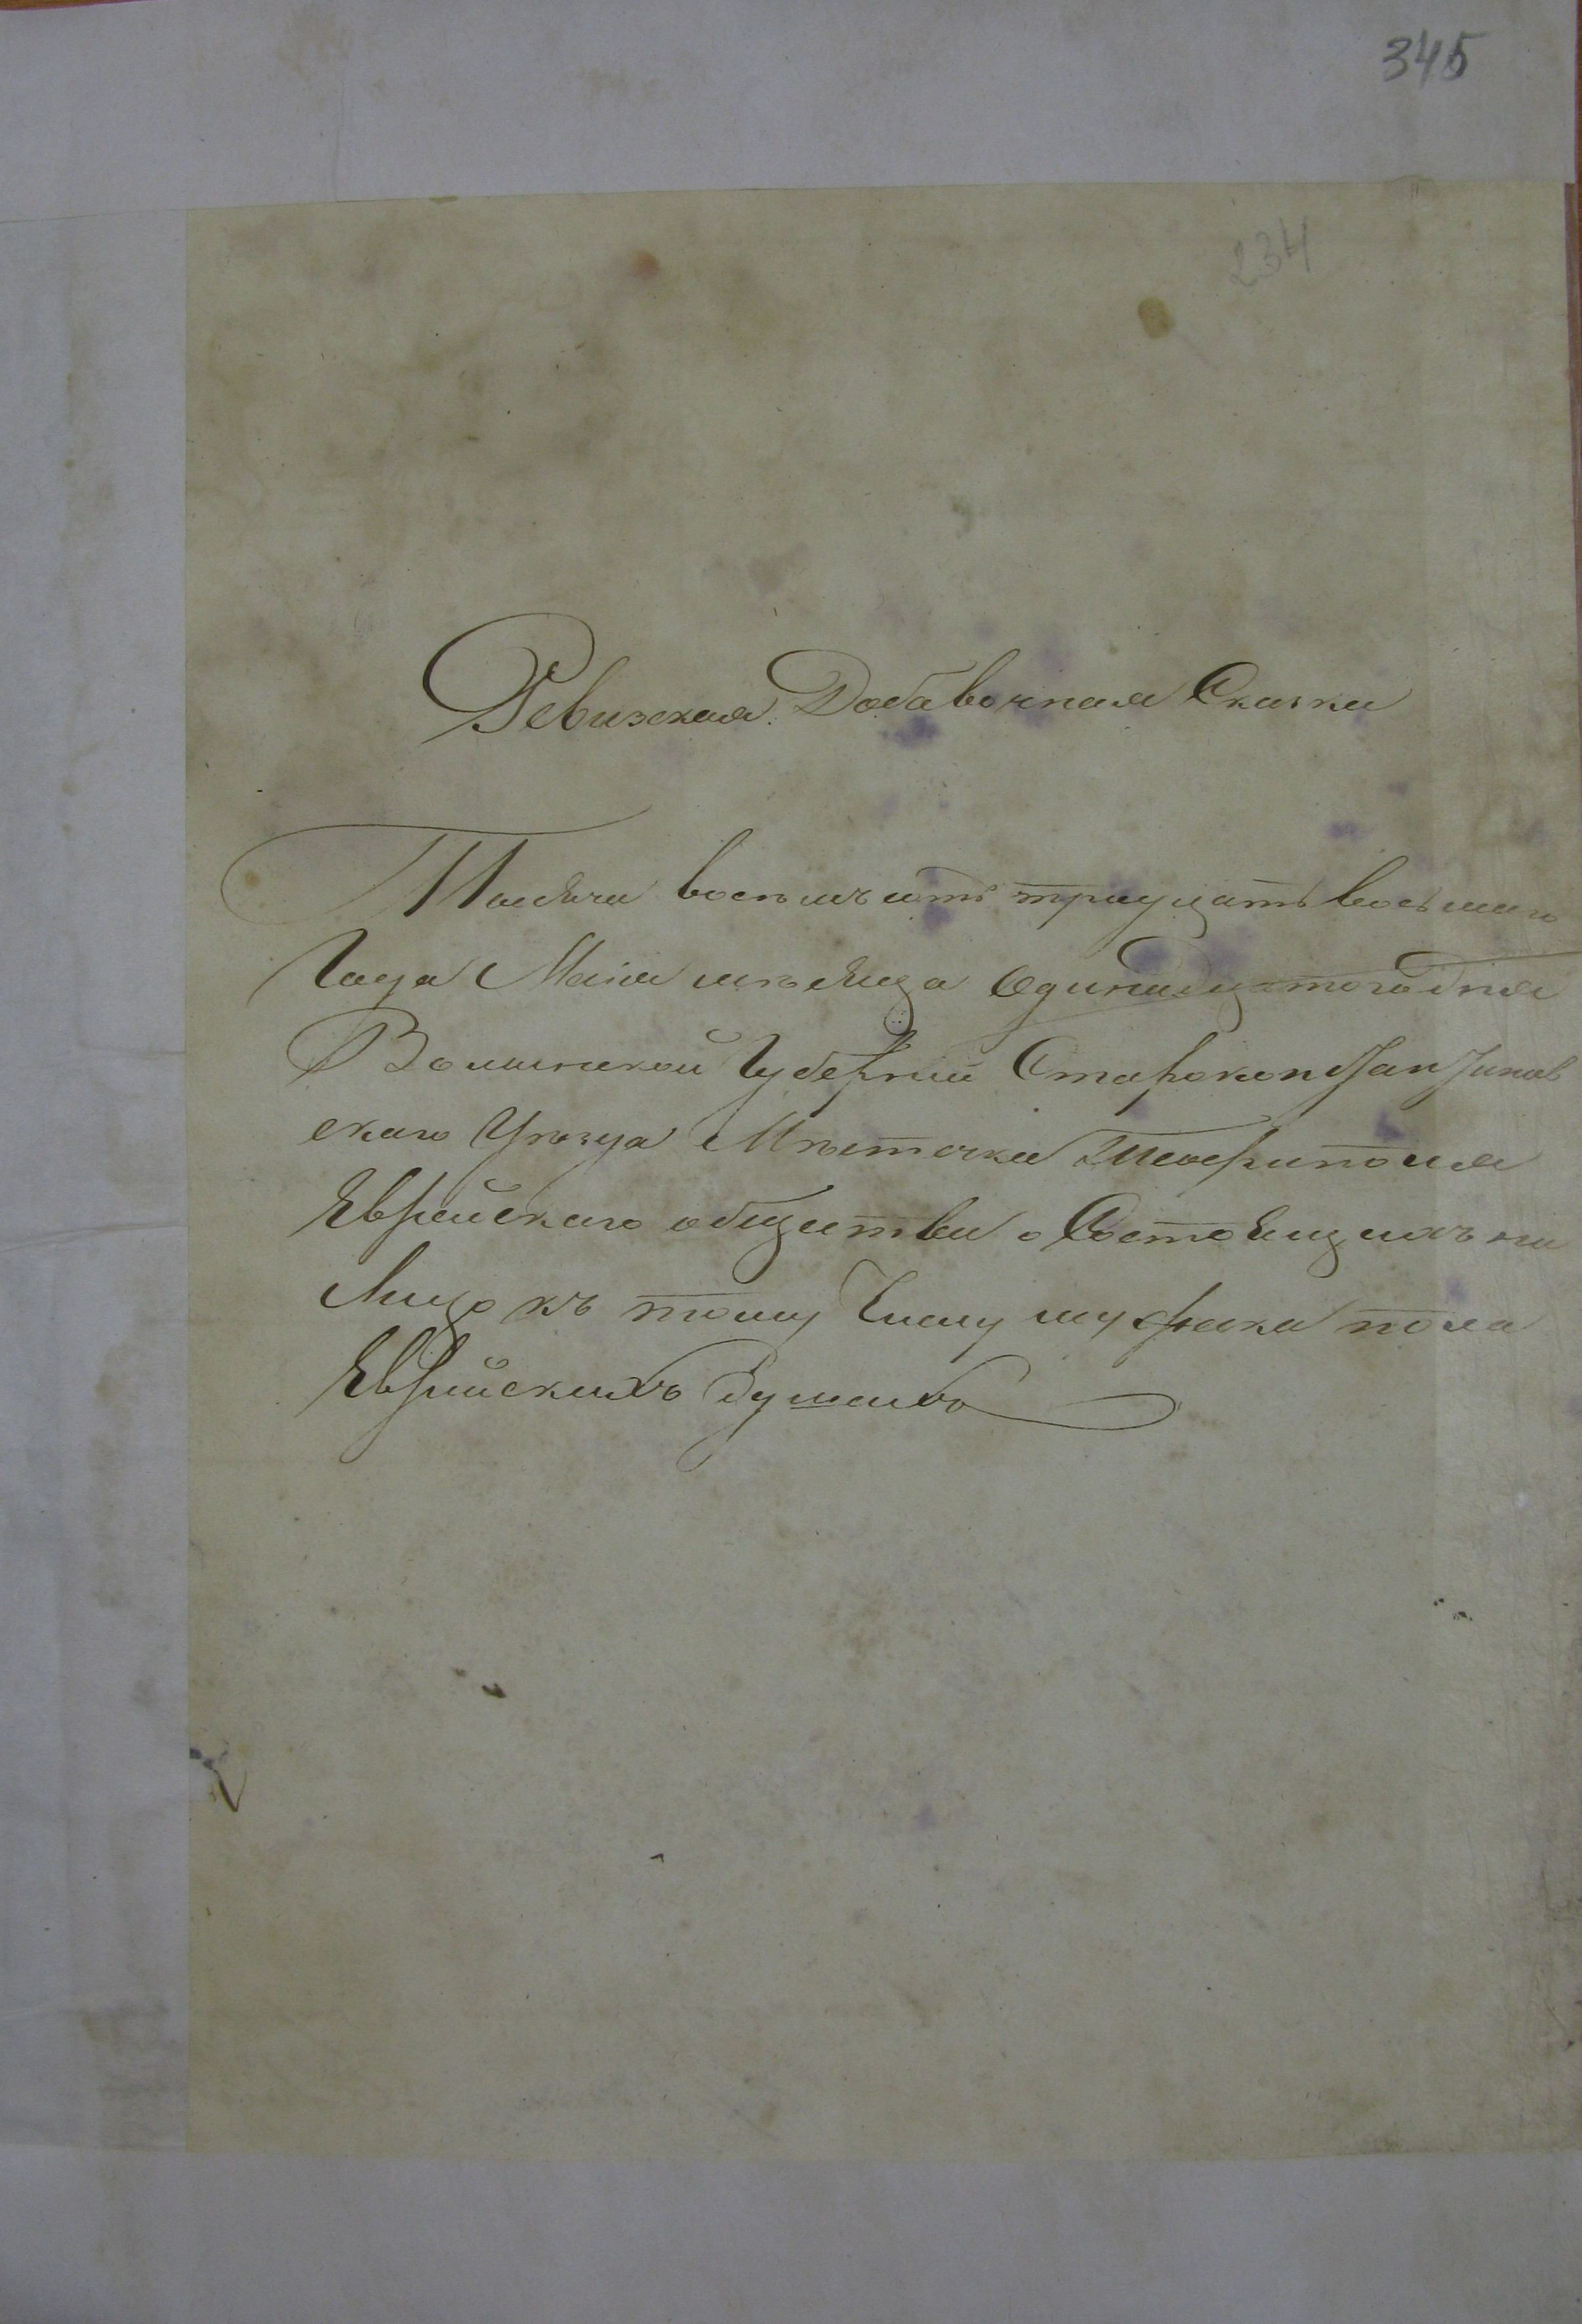 345
234
Ревизская Добавочная Сказка
Тысяча восемъ сотъ тридцать восьмаго
Года Маія мѣсяца Одинадцатого дня
Волынской Губерніи Староконстантинов
скаго Уѣзда Мѣстечка Теофиполя
Еврейскаго общества о Состоящихъ на
Лицо къ тому Числу мужска пола
Еврейскихъ душахъ